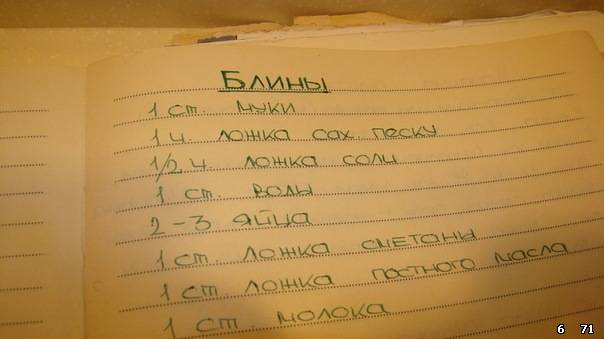 Блины
1 ст. муки
1 ч. ложка сах. песку
1/2 ч. ложка соли
1 ст. воды
2-3 яйца
1 ст. ложка сметаны
1 ст. ложка постного масла
1 ст. молока
6 71